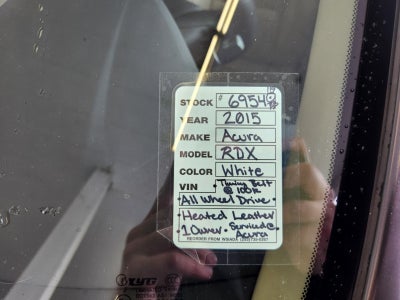 STOCK # 6954
YEAR 2015
MAKE Acura
MODEL RDX
COLOR White
VIN Timing Belt @ 100K
• All Wheel Drive •
• Heated Leather
1 Owner • Serviced @ Acura